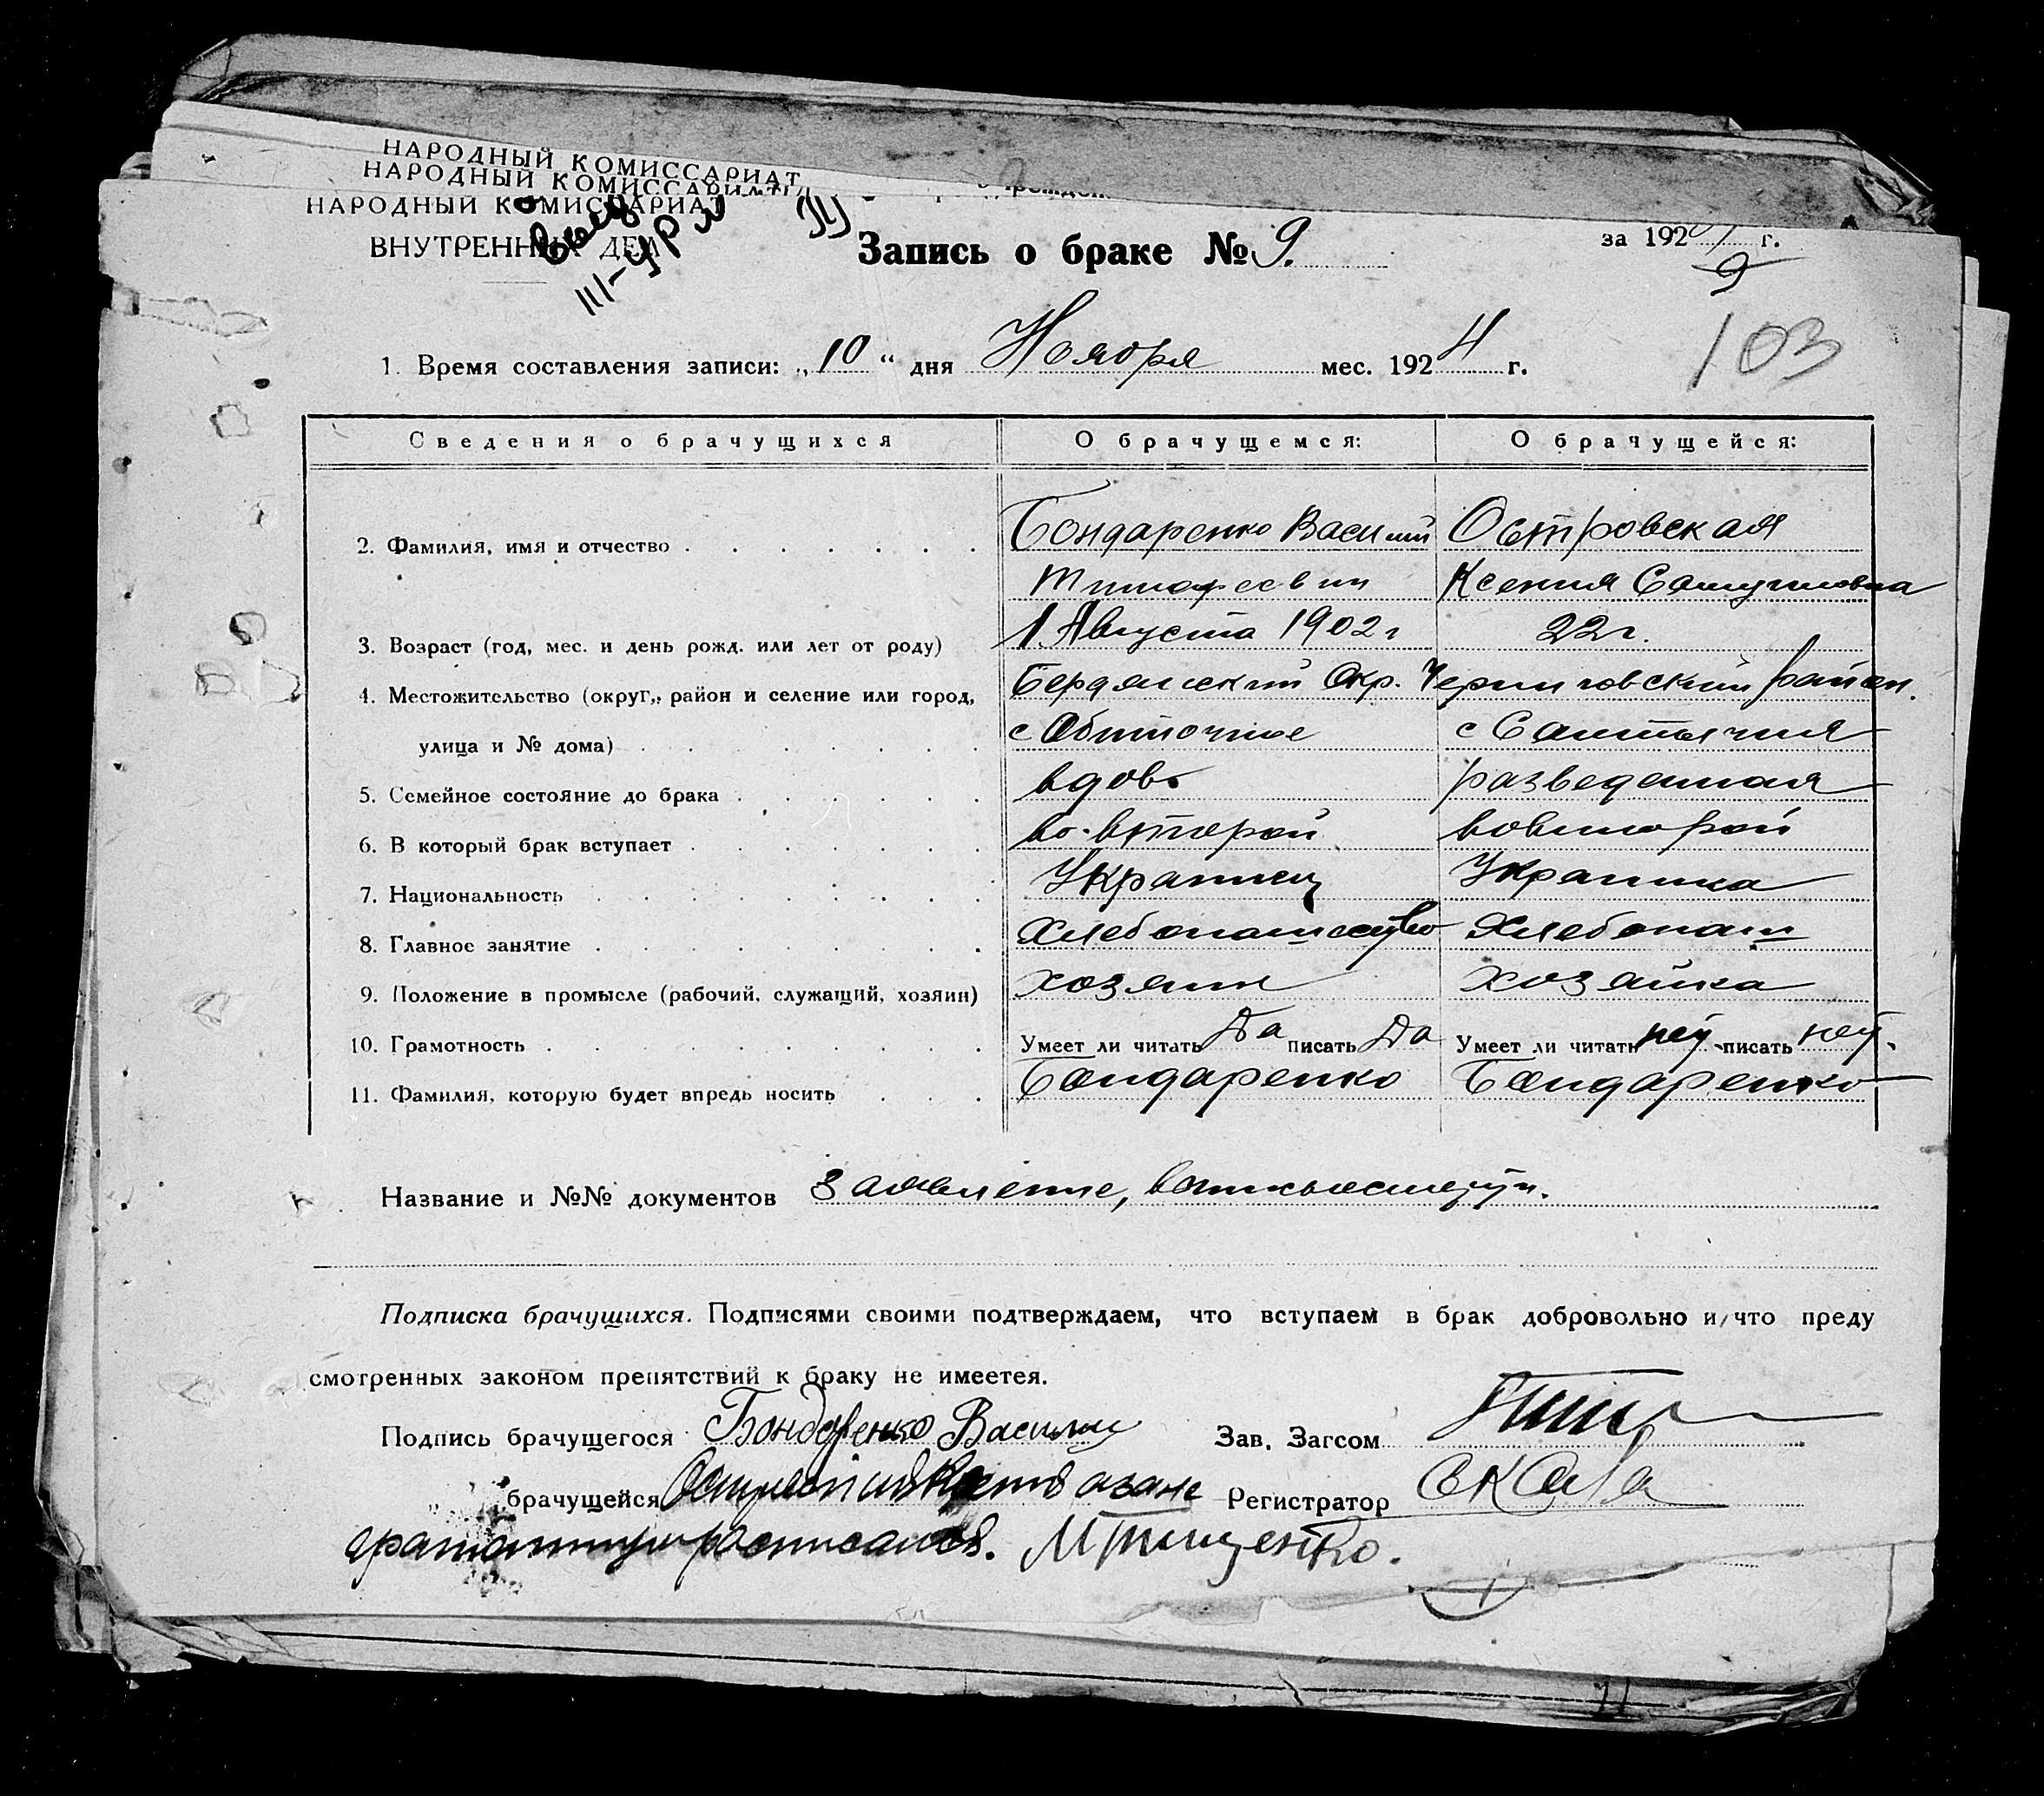 НАРОДНЫЙ КОМИССАРИАТ
НАРОДНЫЙ КОМИССАРИАТ
НАРОДНЫЙ КОМИССАРИАТ
ВНУТРЕННИХ ДЕЛ
Запись о браке № 9.
за 1924 г.
9
103
1. Время составления записи: „10“ дня Ноября мес. 1924 г.
Сведения о брачущихся О брачущемся: О брачущейся:
2. Фамилия, имя и отчество Бондаренко Василий Островская
Тимофеевич Ксения Самуиловна
3. Возраст (год, мес. и день рожд. или лет от роду) 1 Августа 1902 г 22 г.
4. Местожительство (округ, район и селение или город, Бердянский Окр. Черниговский район.
улица и № дома) с Обиточное с Салтычия
5. Семейное состояние до брака вдовъ разведенная
6. В который брак вступает во-второй вовторой
7. Национальность Украинец Украинка
8. Главное занятие Хлебопашество Хлебопаш
9. Положение в промысле (рабочий, служащий, хозяин) хозяин хозяйка
10. Грамотность Умеет ли читать Да писать Да Умеет ли читать нет писать нет.
11. Фамилия, которую будет впредь носить Бондаренко Бондаренко
Название и №№ документов Заявление,
Подписка брачущихся. Подписями своими подтверждаем, что вступаем в брак добровольно и что преду
смотренных законом препятствий к браку не имеется.
Подпись брачущегося Бондаренко Василий Зав. Загсом
брачущейся Регистратор
расписался. Мтищенко.